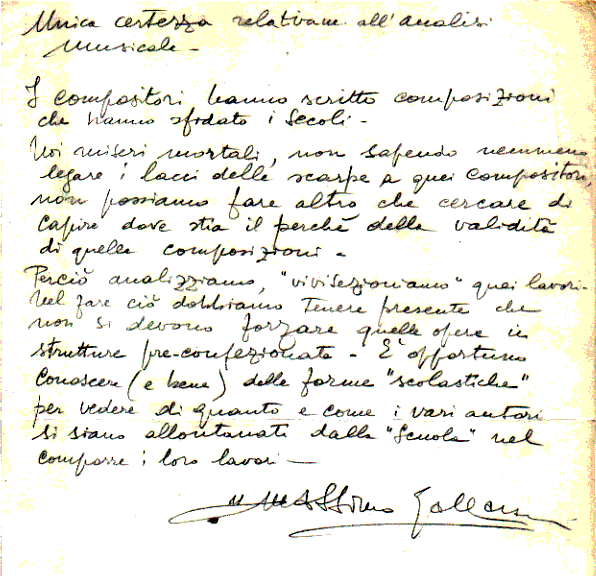 Unica certezza relativam. all'analisi
musicale -
I compositori hanno scritto composizioni
che hanno sfidato i secoli -
Noi miseri mortali, non sapendo nemmeno
legare i lacci delle scarpe a quei compositori,
non possiamo fare altro che cercare di
capire dove stia il perchè della validità
di quelle composizioni -
Perciò analizziamo, "vivisezioniamo" quei lavori -
Nel fare ciò dobbiamo tenere presente che
non si devono forzare quelle opere in
strutture pre-confezionate - È opportuno
conoscere (e bene) delle forme "scolastiche"
per vedere di quanto e come i vari autori
si siano allontanati dalla "Scuola" nel
comporre i loro lavori -
Massimo